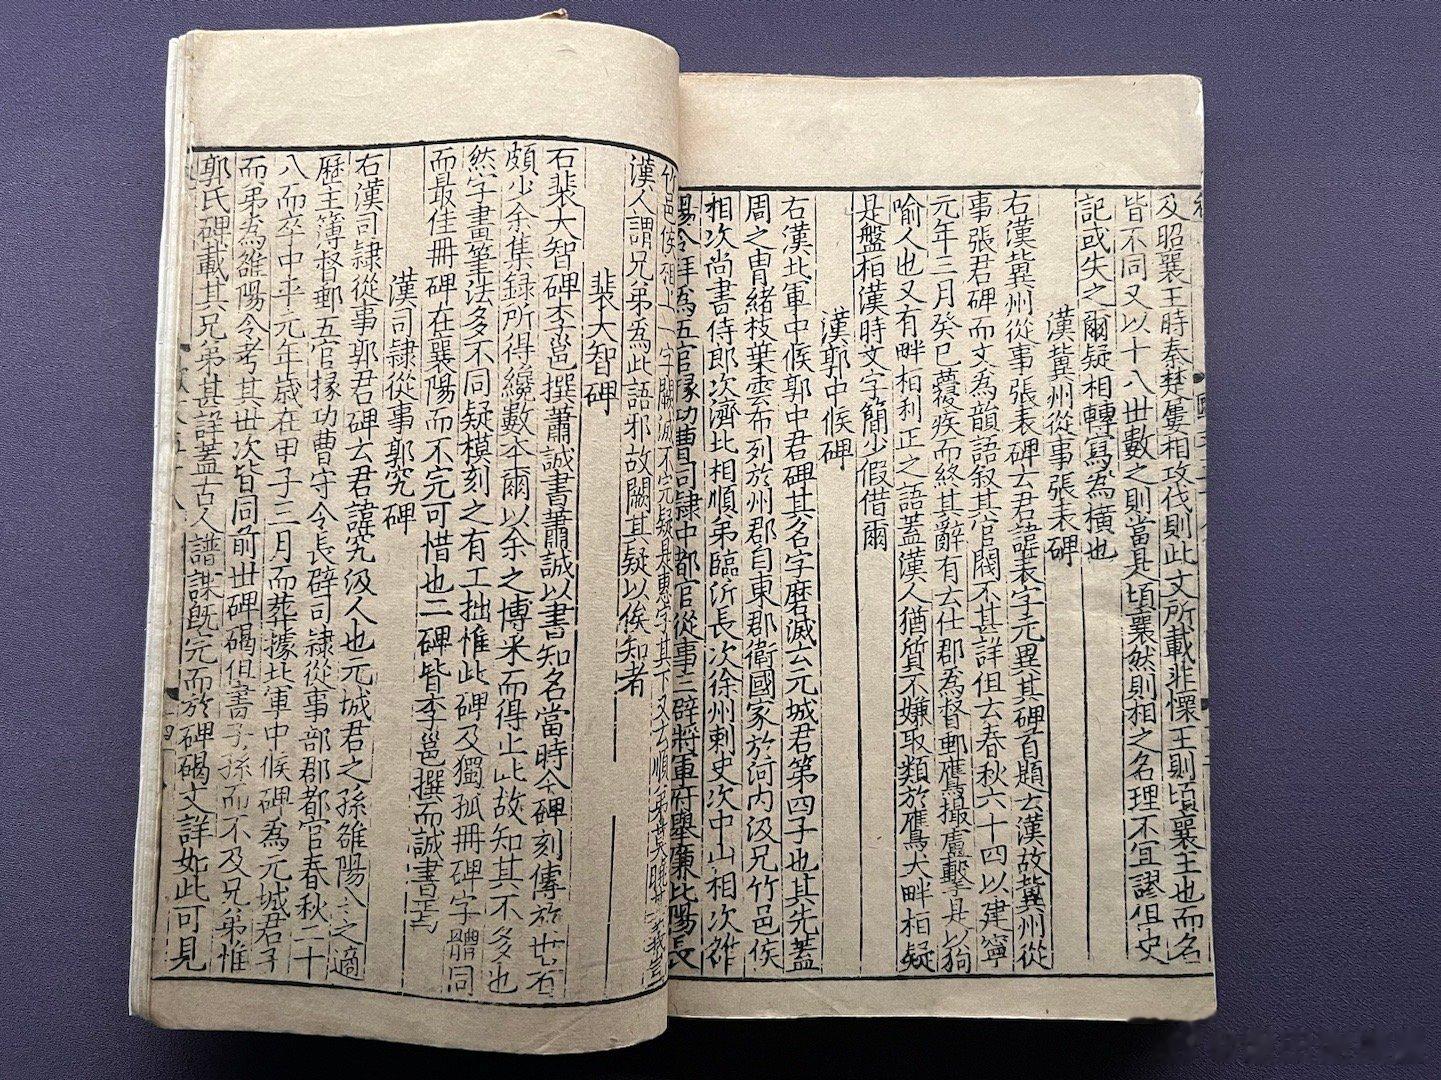 及昭襄王時秦楚屢相攻伐則此文所載非懷王則頃襄王也而名
皆不同又以十八世數之則當是頃襄然則相之名理不宜謬但史
記或失之爾疑相轉寫為橫也
漢冀州從事張表碑
右漢冀州從事張表碑云君諱表字元異其碑首題云漢故冀州從
事張君碑而文為韻語敘其官閥不甚詳但云春秋六十四以建寧
元年三月癸巳薨疾而終其辭有云仕郡為督郵鷹撮盧擊是以狗
喻人也又有畔桓利正之語蓋漢人猶質不嫌取類於鷹犬畔桓疑
是盤桓漢時文字簡少假借爾
漢郭中候碑
右漢北軍中候郭中君碑其名字磨滅云元城君第四子也其先蓋
周之冑緒枝葉雲布列於州郡自東郡衛國家於河內汲兄竹邑侯
相次尚書侍郎次濟北相順弟臨沂長次徐州刺史次中山相次雒
陽令拜為五官掾功曹司隸中都官從事三辟將軍府舉廉比陽長
竹邑侯相上一字闕滅不完疑是惠字其下又云順弟
漢人謂兄弟為此語邪故闕其疑以俟知者
裴大智碑
右裴大智碑李邕撰蕭誠書蕭誠以書知名當時今碑刻傳於世者
頗少余集録所得纔數本爾以余之博采而得止此故知其不多也
然字畫筆法多不同疑模刻之有工拙惟此碑及獨孤冊碑字體同
而最佳冊碑在襄陽而不完可惜也二碑皆李邕撰而誠書焉
漢司隸從事郭究碑
右漢司隸從事郭君碑云君諱究汲人也元城君之孫雒陽令之適
歷主簿督郵五官掾功曹守令長辟司隸從事部郡都官春秋二十
八而卒中平元年歲在甲子三月而葬據北軍中候碑為元城君子
而弟為雒陽令考其世次皆同前世碑碣但書子孫而不及兄弟惟
郭氏碑載其兄弟甚詳蓋古人譜諜既完而於碑碣又詳如此可見